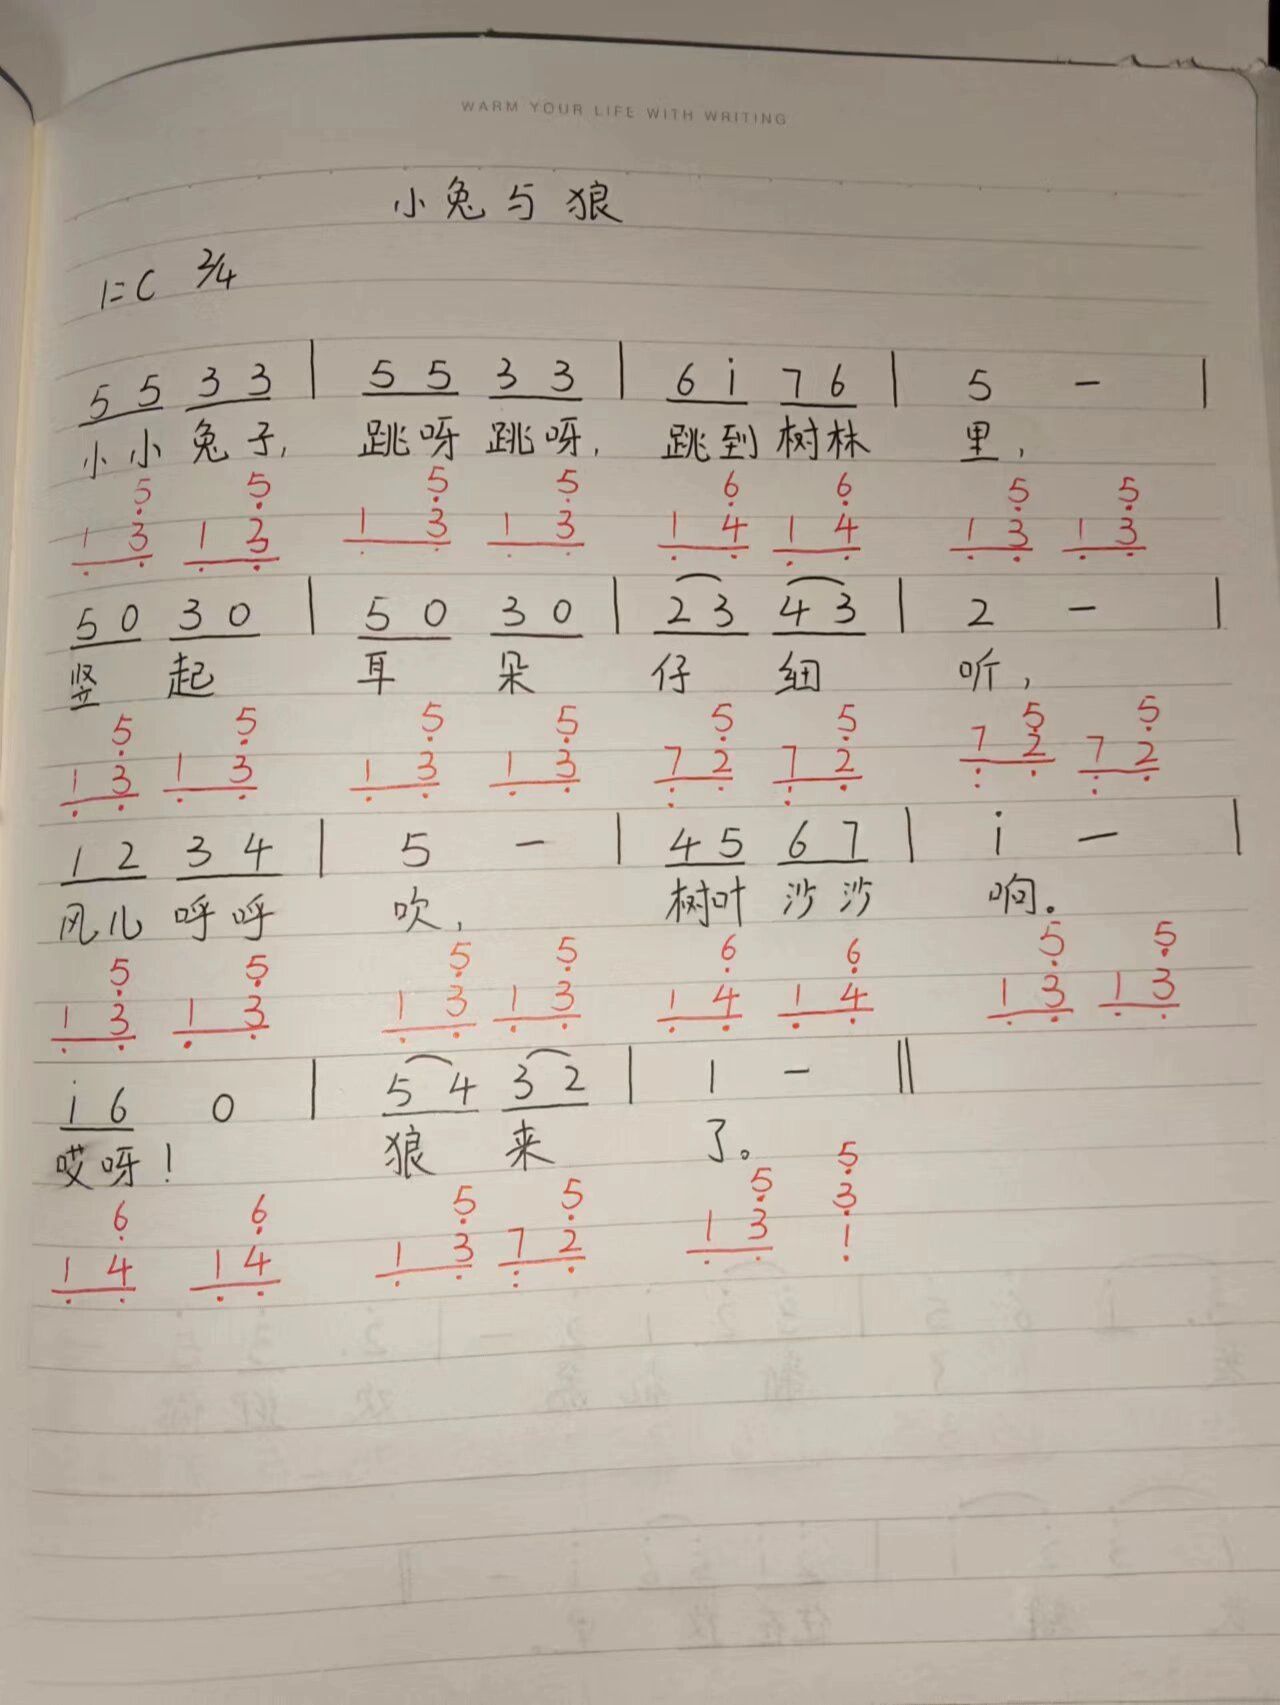 WARM YOUR LIFE WITH WRITING
小兔与狼
1=C 2/4
5 5 3 3 | 5 5 3 3 | 6 i 7 6 | 5 - |
小小兔子, 跳呀跳呀, 跳到树林 里,
5 5 5 5 6 6 5 5
1 3 1 3 1 3 1 3 1 4 1 4 1 3 1 3
5 0 3 0 | 5 0 3 0 | 2 3 4 3 | 2 - |
竖 起 耳 朵 仔 细 听,
5 5 5 5 5 5 5 5
1 3 1 3 1 3 1 3 7 2 7 2 7 2 7 2
1 2 3 4 | 5 - | 4 5 6 7 | i - |
风儿呼呼 吹, 树叶沙沙 响。
5 5 5 5 6 6 5 5
1 3 1 3 1 3 1 3 1 4 1 4 1 3 1 3
i 6 0 | 5 4 3 2 | 1 - ||
哎呀! 狼 来 了。
6 6 5 5 5 5
1 4 1 4 1 3 7 2 1 3 3
1